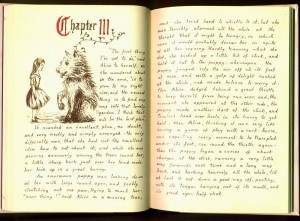 Chapter III
"The first thing
I've got to do," said
Alice to herself, as
she wandered about
in the wood, "is to
grow to my right
size, and the second
thing is to find my
way into that lovely
garden. I think that
will be the best plan."
It sounded an excellent plan, no doubt,
and very neatly and simply arranged: the only
difficulty was, that she had not the smallest
idea how to set about it; and while she was
peering anxiously among the trees round her,
a little sharp bark just over her head made
her look up in a great hurry.
An enormous puppy was looking down
at her with large round eyes, and feebly
stretching out one paw, trying to reach her:
"poor thing!" said Alice in a coaxing tone,
and she tried hard to whistle to it, but she
was terribly alarmed all the while at the
thought that it might be hungry, in which
case it would probably devour her in spite
of all her coaxing. Hardly knowing what she
did, she picked up a little bit of stick, and
held it out to the puppy: whereupon the
puppy jumped into the air off all its feet
at once, and with a yelp of delight rushed
at the stick, and made believe to worry it:
then Alice dodged behind a great thistle
to keep herself from being run over, and, the
moment she appeared at the other side, the
puppy made another dart at the stick, and
tumbled head over heels in its hurry to get
hold: then Alice, thinking it was very like
having a game of play with a cart-horse,
and expecting every moment to be trampled
under its feet, ran round the thistle again:
then the puppy began a series of short
charges at the stick, running a very little
way forwards each time and a long way
back, and barking hoarsely all the while, till
at last it sat down a good way off, panting,
with its tongue hanging out of its mouth, and
its great eyes half shut.